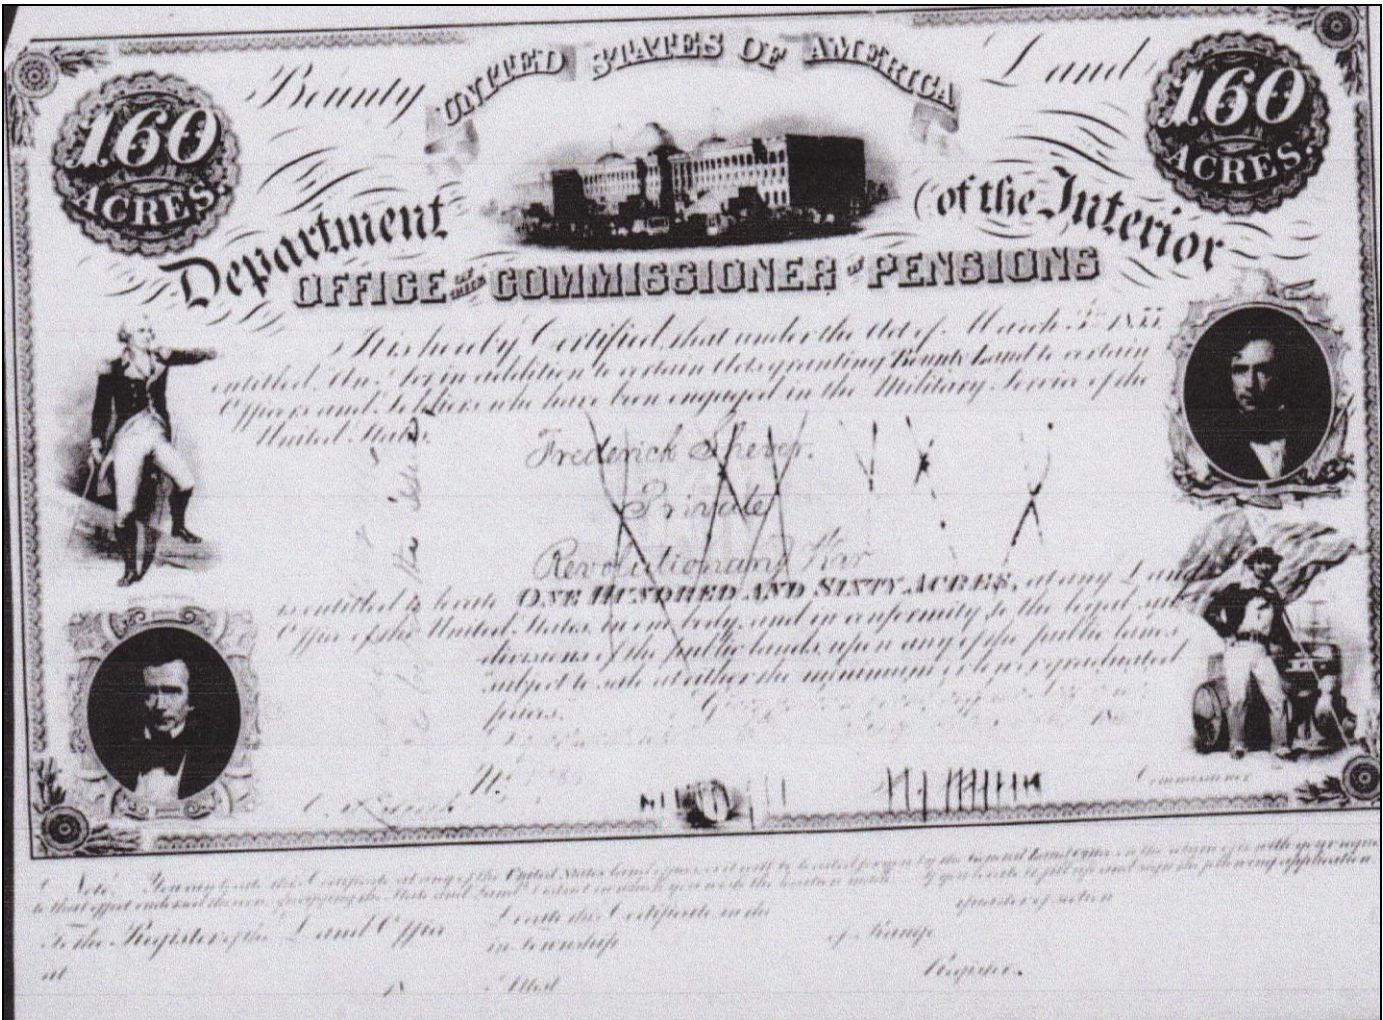 160 ACRES.
Bounty
UNITED STATES OF AMERICA
Land
160 ACRES.
Department of the Interior
OFFICE OF THE COMMISSIONER OF PENSIONS
It is hereby Certified, that under the Act of March 3rd 1855,
entitled "An Act in addition to certain Acts granting Bounty Land to certain
Officers and Soldiers who have been engaged in the Military Service of the
United States,"
Frederick
Private
Revolutionary War
is entitled to locate ONE HUNDRED AND SIXTY ACRES, at any Land
Office of the United States, in one body, and in conformity to the legal sub
divisions of the public lands, upon any of the public lands
subject to sale at either the minimum or lower graduated
prices.
No
Commissioner
Note! You may locate this Certificate at any of the United States land offices or it will be located for you by the General Land Office on the return of it with your request
to that effect endorsed thereon, specifying the State and Land District in which you wish the location made. If you locate it fill up and sign the following application.
To the Register of the Land Office
Locate this Certificate in the
quarter of section
in Township
of Range
at
Attest
Register.